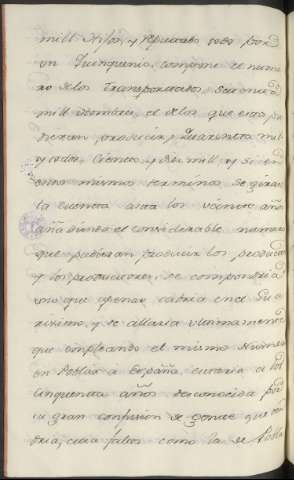 mill Años, y reputado todo por
un Quinquenio, compone el nume
ro de los transportados, Sesenta
mill hombres, el de los que estos pu
dieran producir, Quarenta mil
y todos, Ciento, y diez mill, y si en
estos mismos terminos se giran
la cuenta asta los veinte años
añadiendo el considerable numero
que pudieran producir los producidos
y los productores, se compondria
uno que apenas cabria en el Gua
rismo, y se allaria ultimamente
que empleando el mismo Numero
en Poblar a España, estaria a los
cinquenta años desconocida por
la gran confusion de gente que ten
dria, cuia falta como la de Pobla